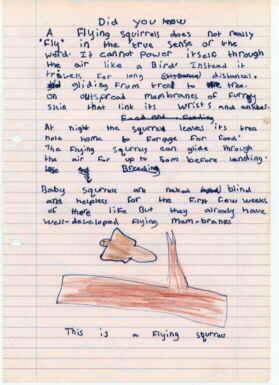 Did you know
A Flying squirrels does not really
"Fly" in the true sense of the
word. It cannot power itself through
the air like a Bird! Instead it
travels for long distances.
gliding From tree to tree.
on outspread membranes of furry
skin that link its wrists and ankles.
At night the squirrel leaves its tree
hole home to Forage For food.
The Flying squrruy can glide through
the air for up to 50m before landing.
Breeding
Baby squrrels are naked blind
and helpless for the First few weeks
of there life But they already have
well-developed Flying Mem-branes
This is a Flying squrrow